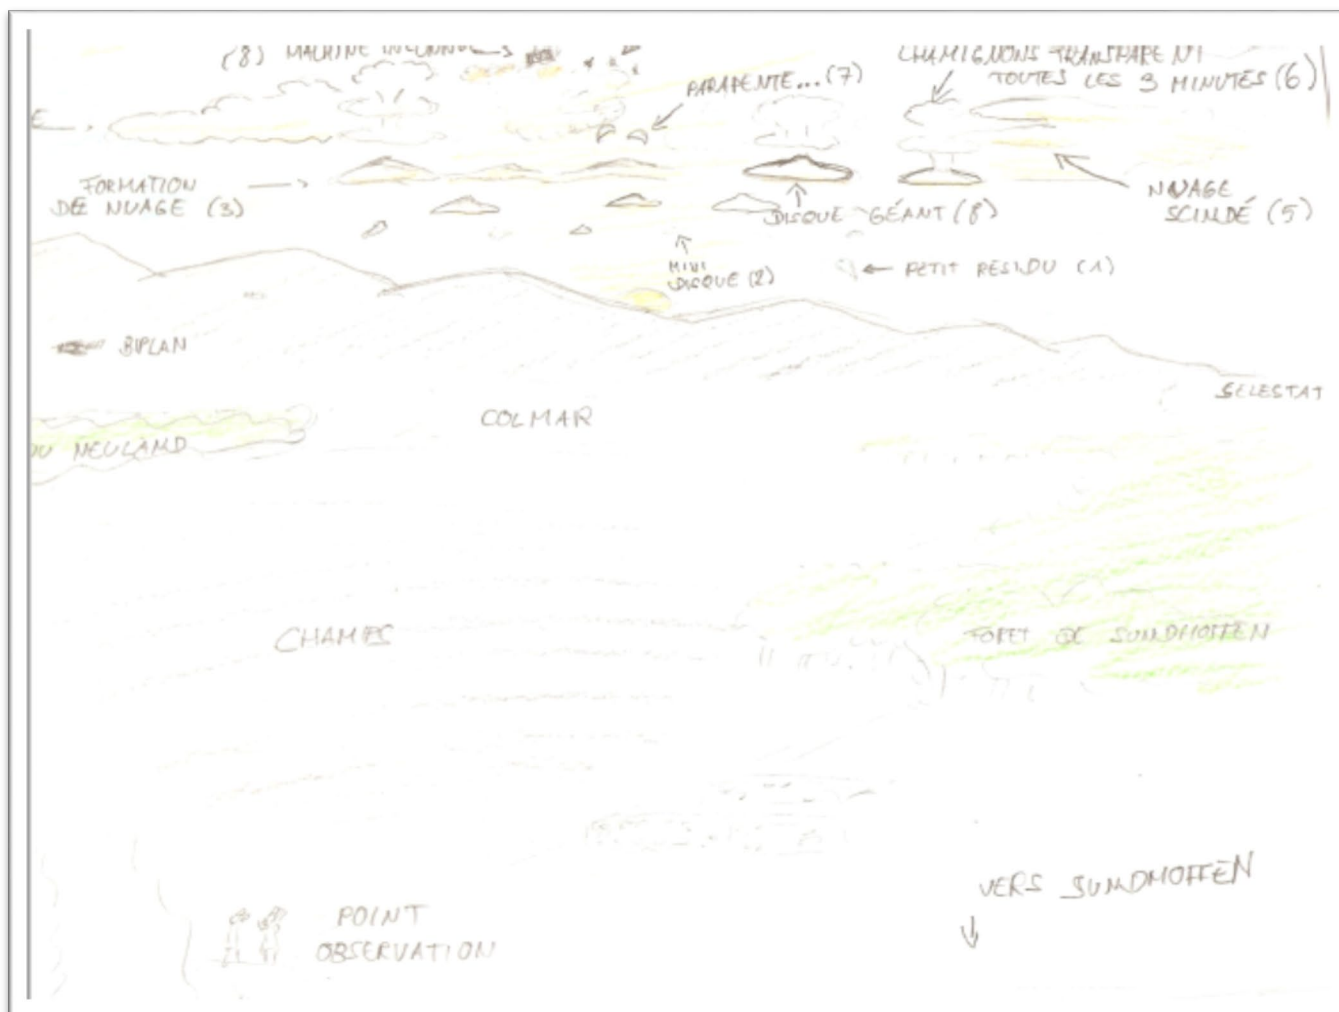 (8) MACHINE INCONNUES
CHAMIGNONS TRANSPARENT
TOUTES LES 3 MINUTES (6)
PARAPENTE...(7)
E
FORMATION
DE NUAGE (3)
DISQUE GÉANT (8)
NUAGE
SCINDÉ (5)
MINI
DISQUE (2)
PETIT RESIDU (1)
BIPLAN
SELESTAT
COLMAR
DU NEULAND
CHAMPS
FORET DE SUNDHOFFEN
VERS SUNDHOFFEN
POINT
OBSERVATION